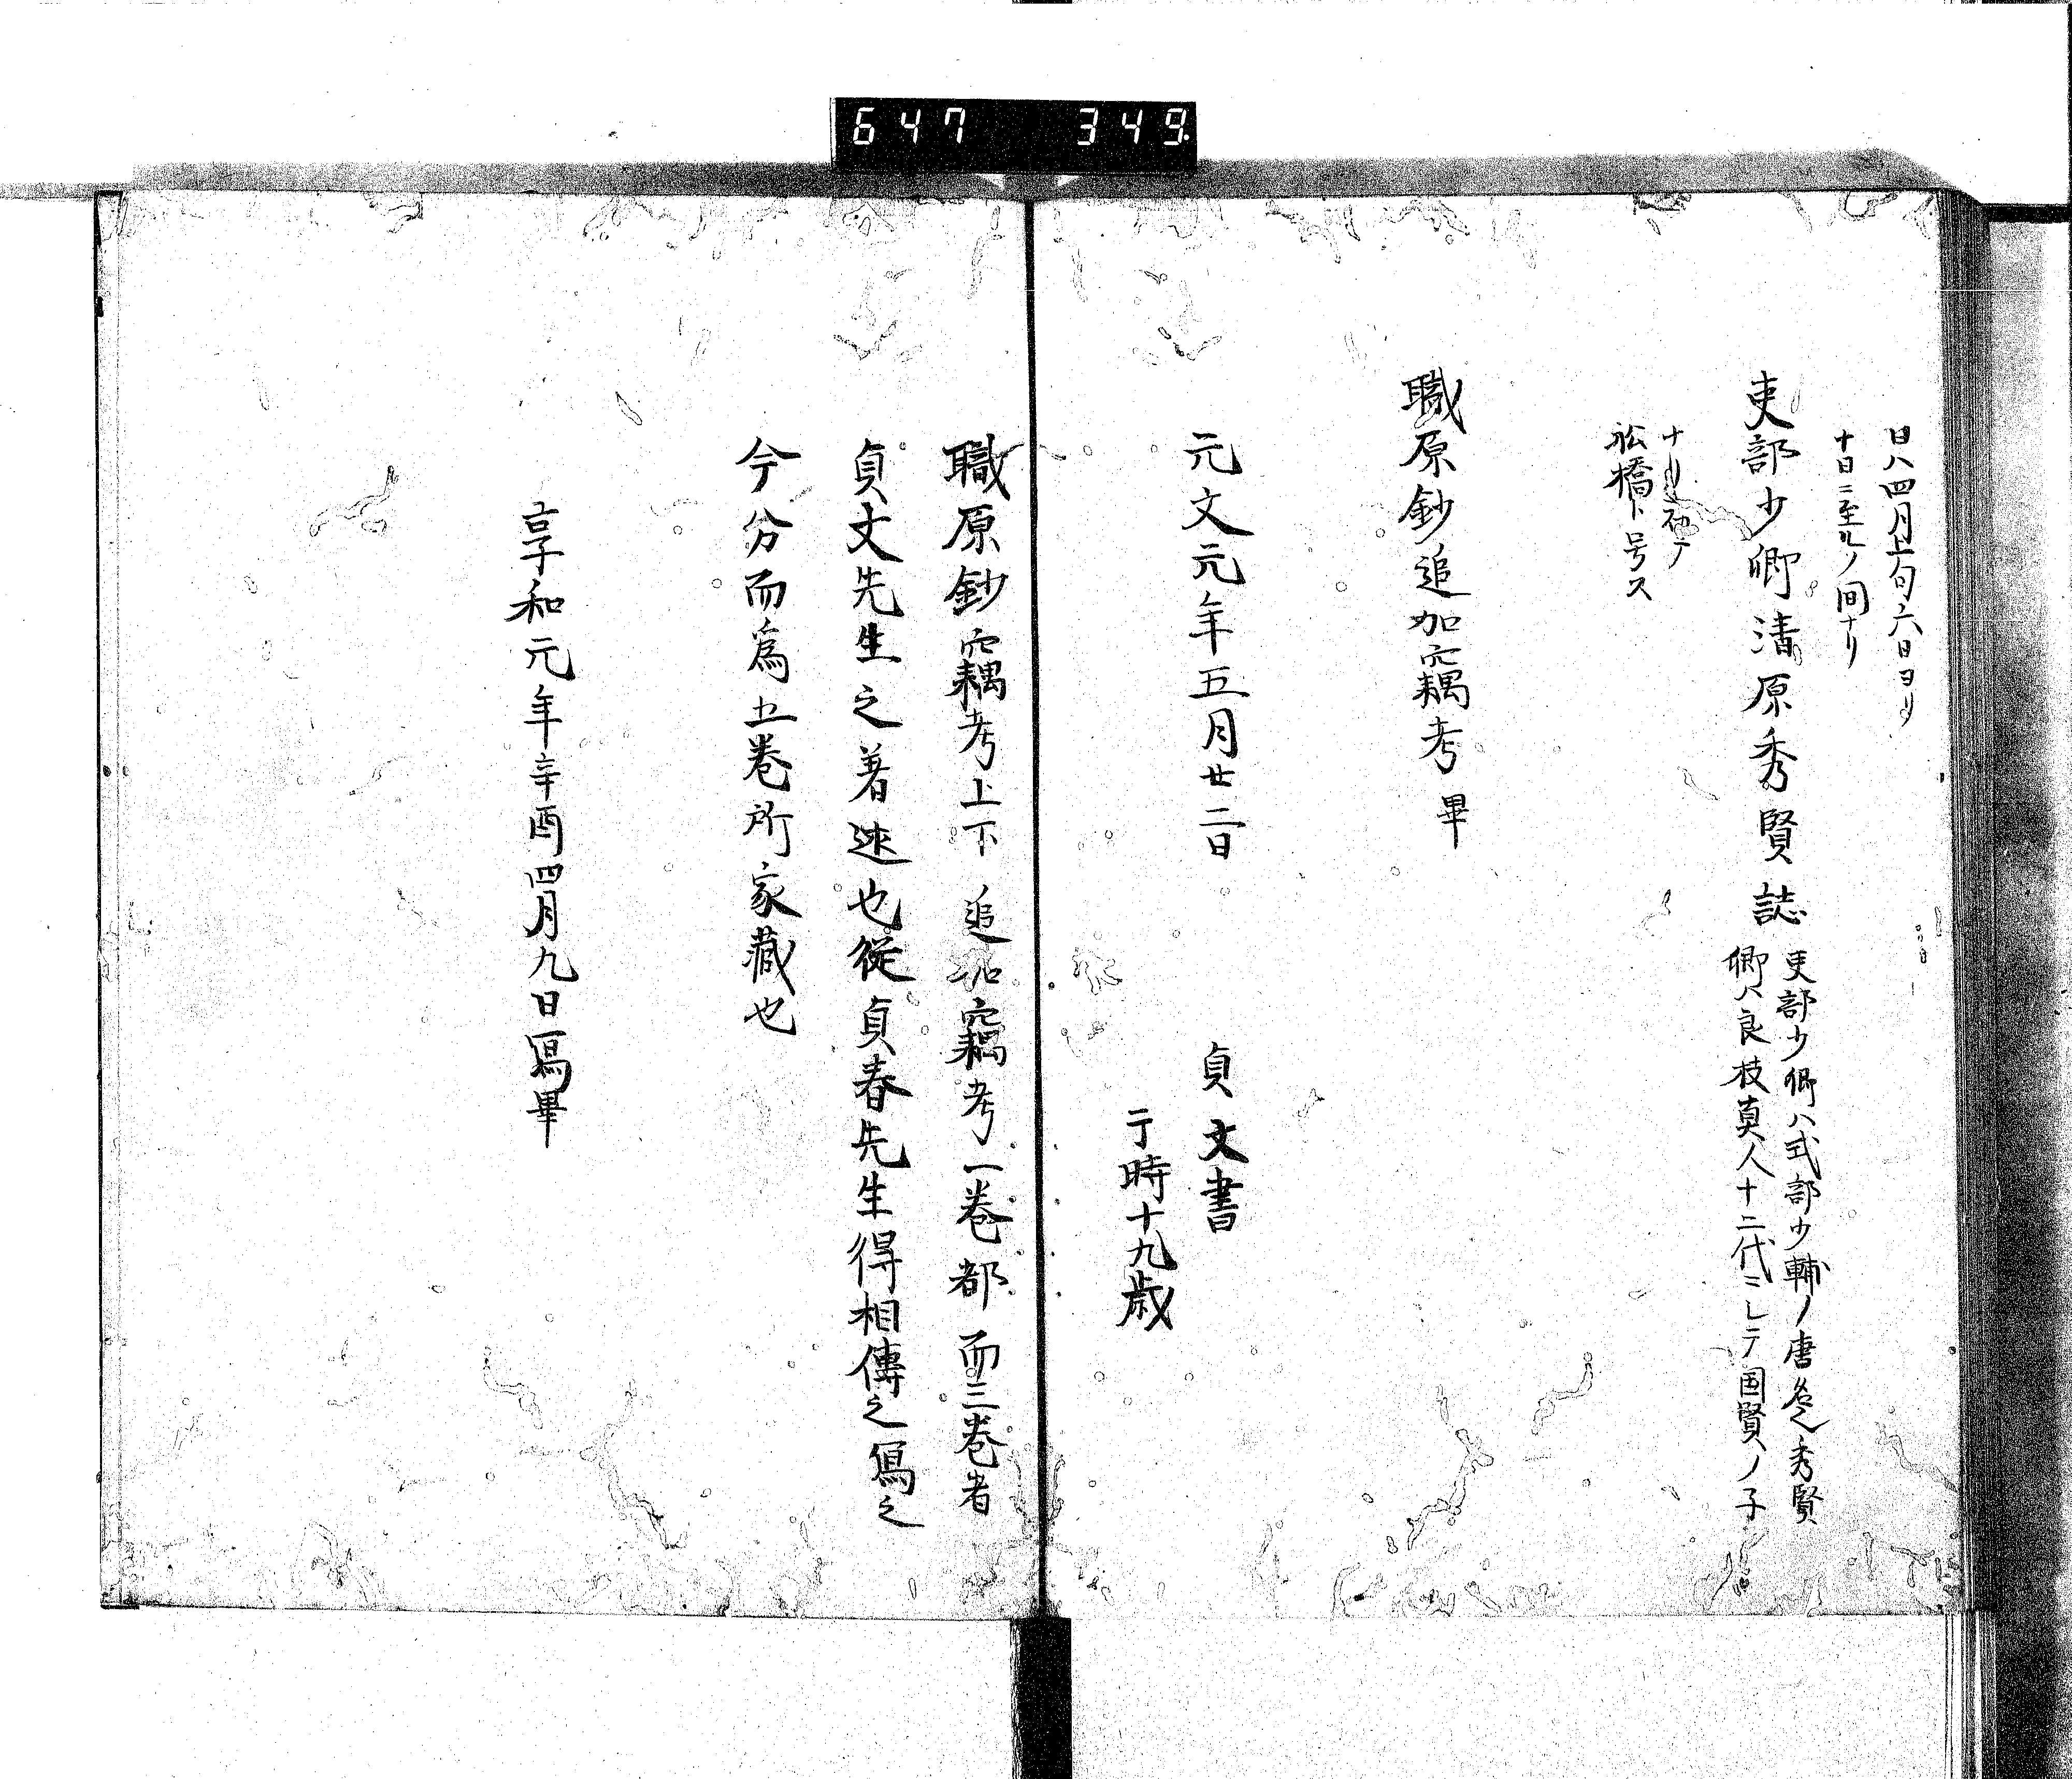 647 349
日ハ四月上旬六日ヨリ
十日ニ至ルノ間ナリ
吏部少卿清原秀賢誌
吏部少卿ハ式部少輔ノ唐名也秀賢
卿ハ良枝真人十二代ニシテ国賢ノ子
ナリ初テ
舩橋ト号ス
職原鈔追加竊考畢
元文元年五月廿二日
貞文書
于時十九歳
職原鈔竊考上下追加竊考一巻都而三巻者
貞丈先生之著述也從貞春先生得相傳之寫之
今分而爲五巻所家藏也
享和元年辛酉四月九日寫畢